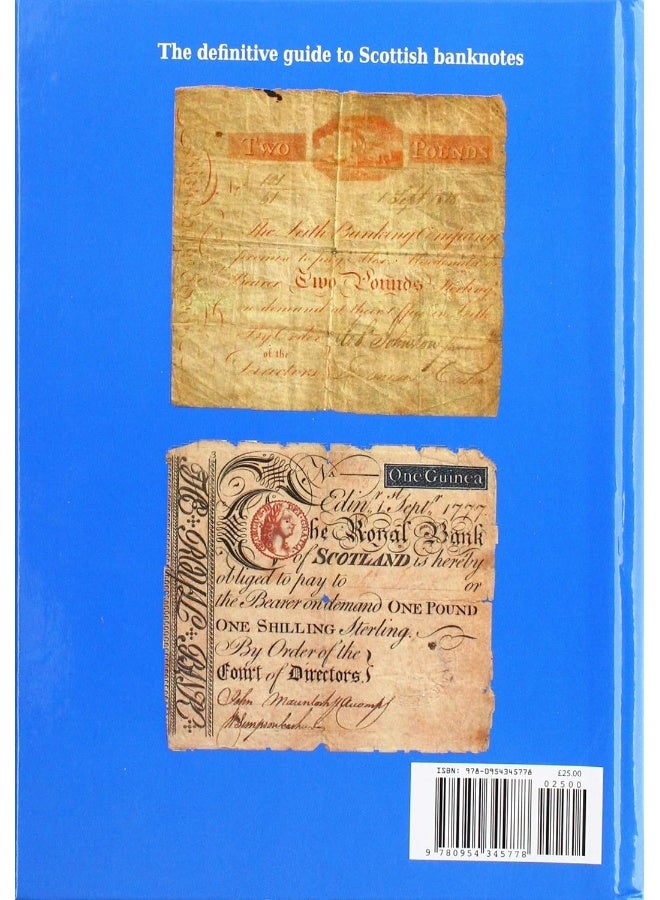 The definitive guide to Scottish banknotes
TWO POUNDS
1 Sept
The Leith Banking Company
promise to pay
Bearer Two Pounds
on demand at their Office in Leith
By Order
of the
Directors
One Guinea
Edinr 1st Septr. 1777
The Royal Bank
of SCOTLAND is hereby
obliged to pay to or
the Bearer on demand ONE POUND
ONE SHILLING Sterling.
By Order of the
Court of Directors.
THE ROYAL BANK
ISBN: 978-0954345778 £25.00
02500
9 780954 345778